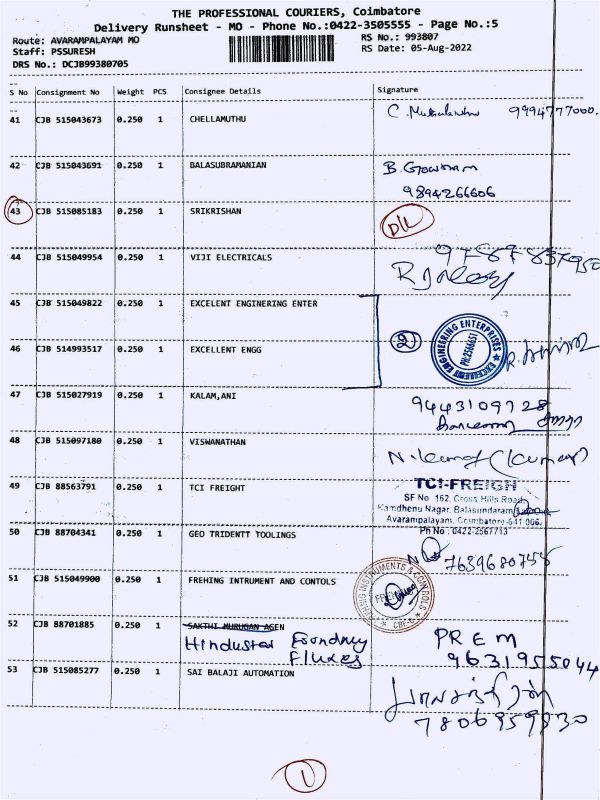 THE PROFESSIONAL COURIERS, Coimbatore
Delivery Runsheet - MO - Phone No.:0422-3505555 - Page No.:5
Route: AVARAMPALAYAM MO
RS No.: 993807
Staff: PSSURESH
RS Date: 05-Aug-2022
DRS No.: DCJB99380705
S No Consignment No Weight PCS Consignee Details Signature
41 CJB 515043673 0.250 1 CHELLAMUTHU 9994777000.
42 CJB 515043691 0.250 1 BALASUBRAMANIAN B. Gowtham
9894266606
43 CJB 515085183 0.250 1 SRIKRISHAN
44 CJB 515049954 0.250 1 VIJI ELECTRICALS 9787837950
45 CJB 515049822 0.250 1 EXCELENT ENGINERING ENTER
2 EXCELLENT ENGINEERING ENTERPRISES PH:2566657
46 CJB 514993517 0.250 1 EXCELLENT ENGG
47 CJB 515027919 0.250 1 KALAM,ANI 9443109728
48 CJB 515097180 0.250 1 VISWANATHAN (Kumar)
49 CJB 88563791 0.250 1 TCI FREIGHT TCI-FREIGH
SF No 162, Cross Hills Road
Kamdhenu Nagar, Balasundaram
Avarampalayam, Coimbatore-641 006.
Ph No : 0422-2567713
50 CJB 88704341 0.250 1 GEO TRIDENTT TOOLINGS 7639680758
51 CJB 515049900 0.250 1 FREHING INTRUMENT AND CONTOLS
52 CJB 88701885 0.250 1 SAKTHI MURUGAN AGEN PREM
Hindustan Foundry 9631955044
Fluxes
53 CJB 515085277 0.250 1 SAI BALAJI AUTOMATION
7806959830
1